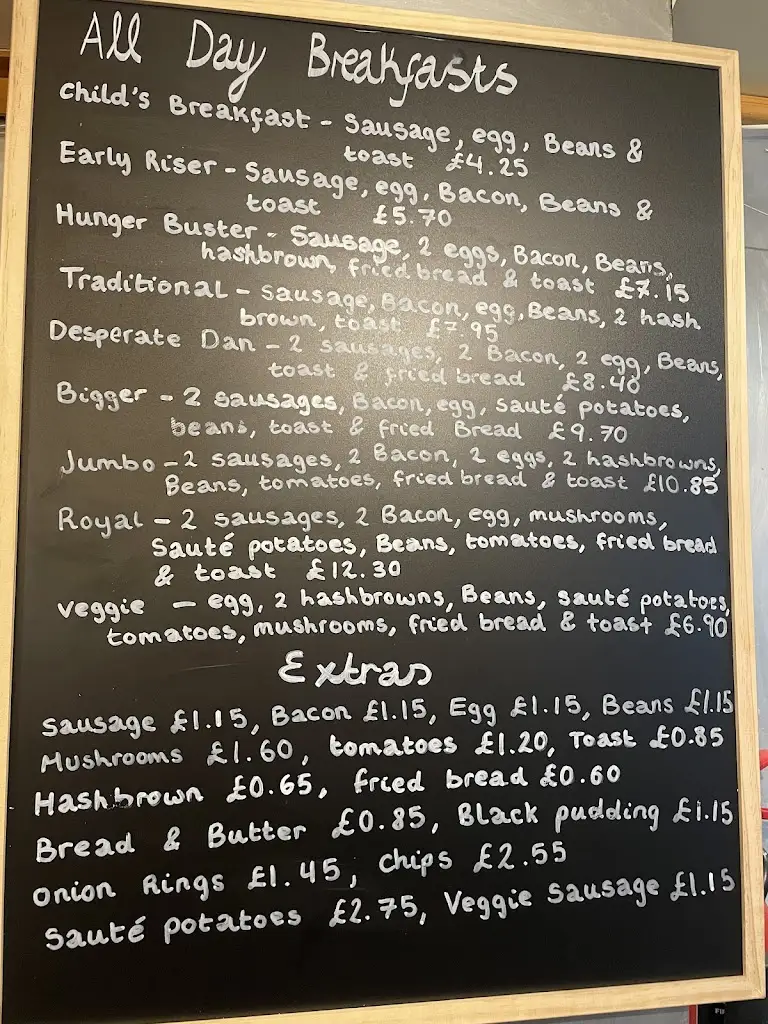 All Day Breakfasts
Child's Breakfast - Sausage, egg, Beans &
toast £4.25
Early Riser - Sausage, egg, Bacon, Beans &
toast £5.70
Hunger Buster - Sausage, 2 eggs, Bacon, Beans,
hashbrown, fried bread & toast £7.15
Traditional - Sausage, Bacon, egg, Beans, 2 hash
brown, toast £7.95
Desperate Dan - 2 sausages, 2 Bacon, 2 egg, Beans,
toast & fried bread £8.40
Bigger - 2 sausages, Bacon, egg, sauté potatoes,
beans, toast & fried Bread £9.70
Jumbo - 2 sausages, 2 Bacon, 2 eggs, 2 hashbrowns,
Beans, tomatoes, fried bread & toast £10.85
Royal - 2 sausages, 2 Bacon, egg, mushrooms,
Sauté potatoes, Beans, tomatoes, fried bread
& toast £12.30
Veggie - egg, 2 hashbrowns, Beans, sauté potatoes,
tomatoes, mushrooms, fried bread & toast £6.90
Extras
Sausage £1.15, Bacon £1.15, Egg £1.15, Beans £1.15
Mushrooms £1.60, tomatoes £1.20, Toast £0.85
Hashbrown £0.65, fried bread £0.60
Bread & Butter £0.85, Black pudding £1.15
Onion Rings £1.45, chips £2.55
Sauté potatoes £2.75, Veggie Sausage £1.15